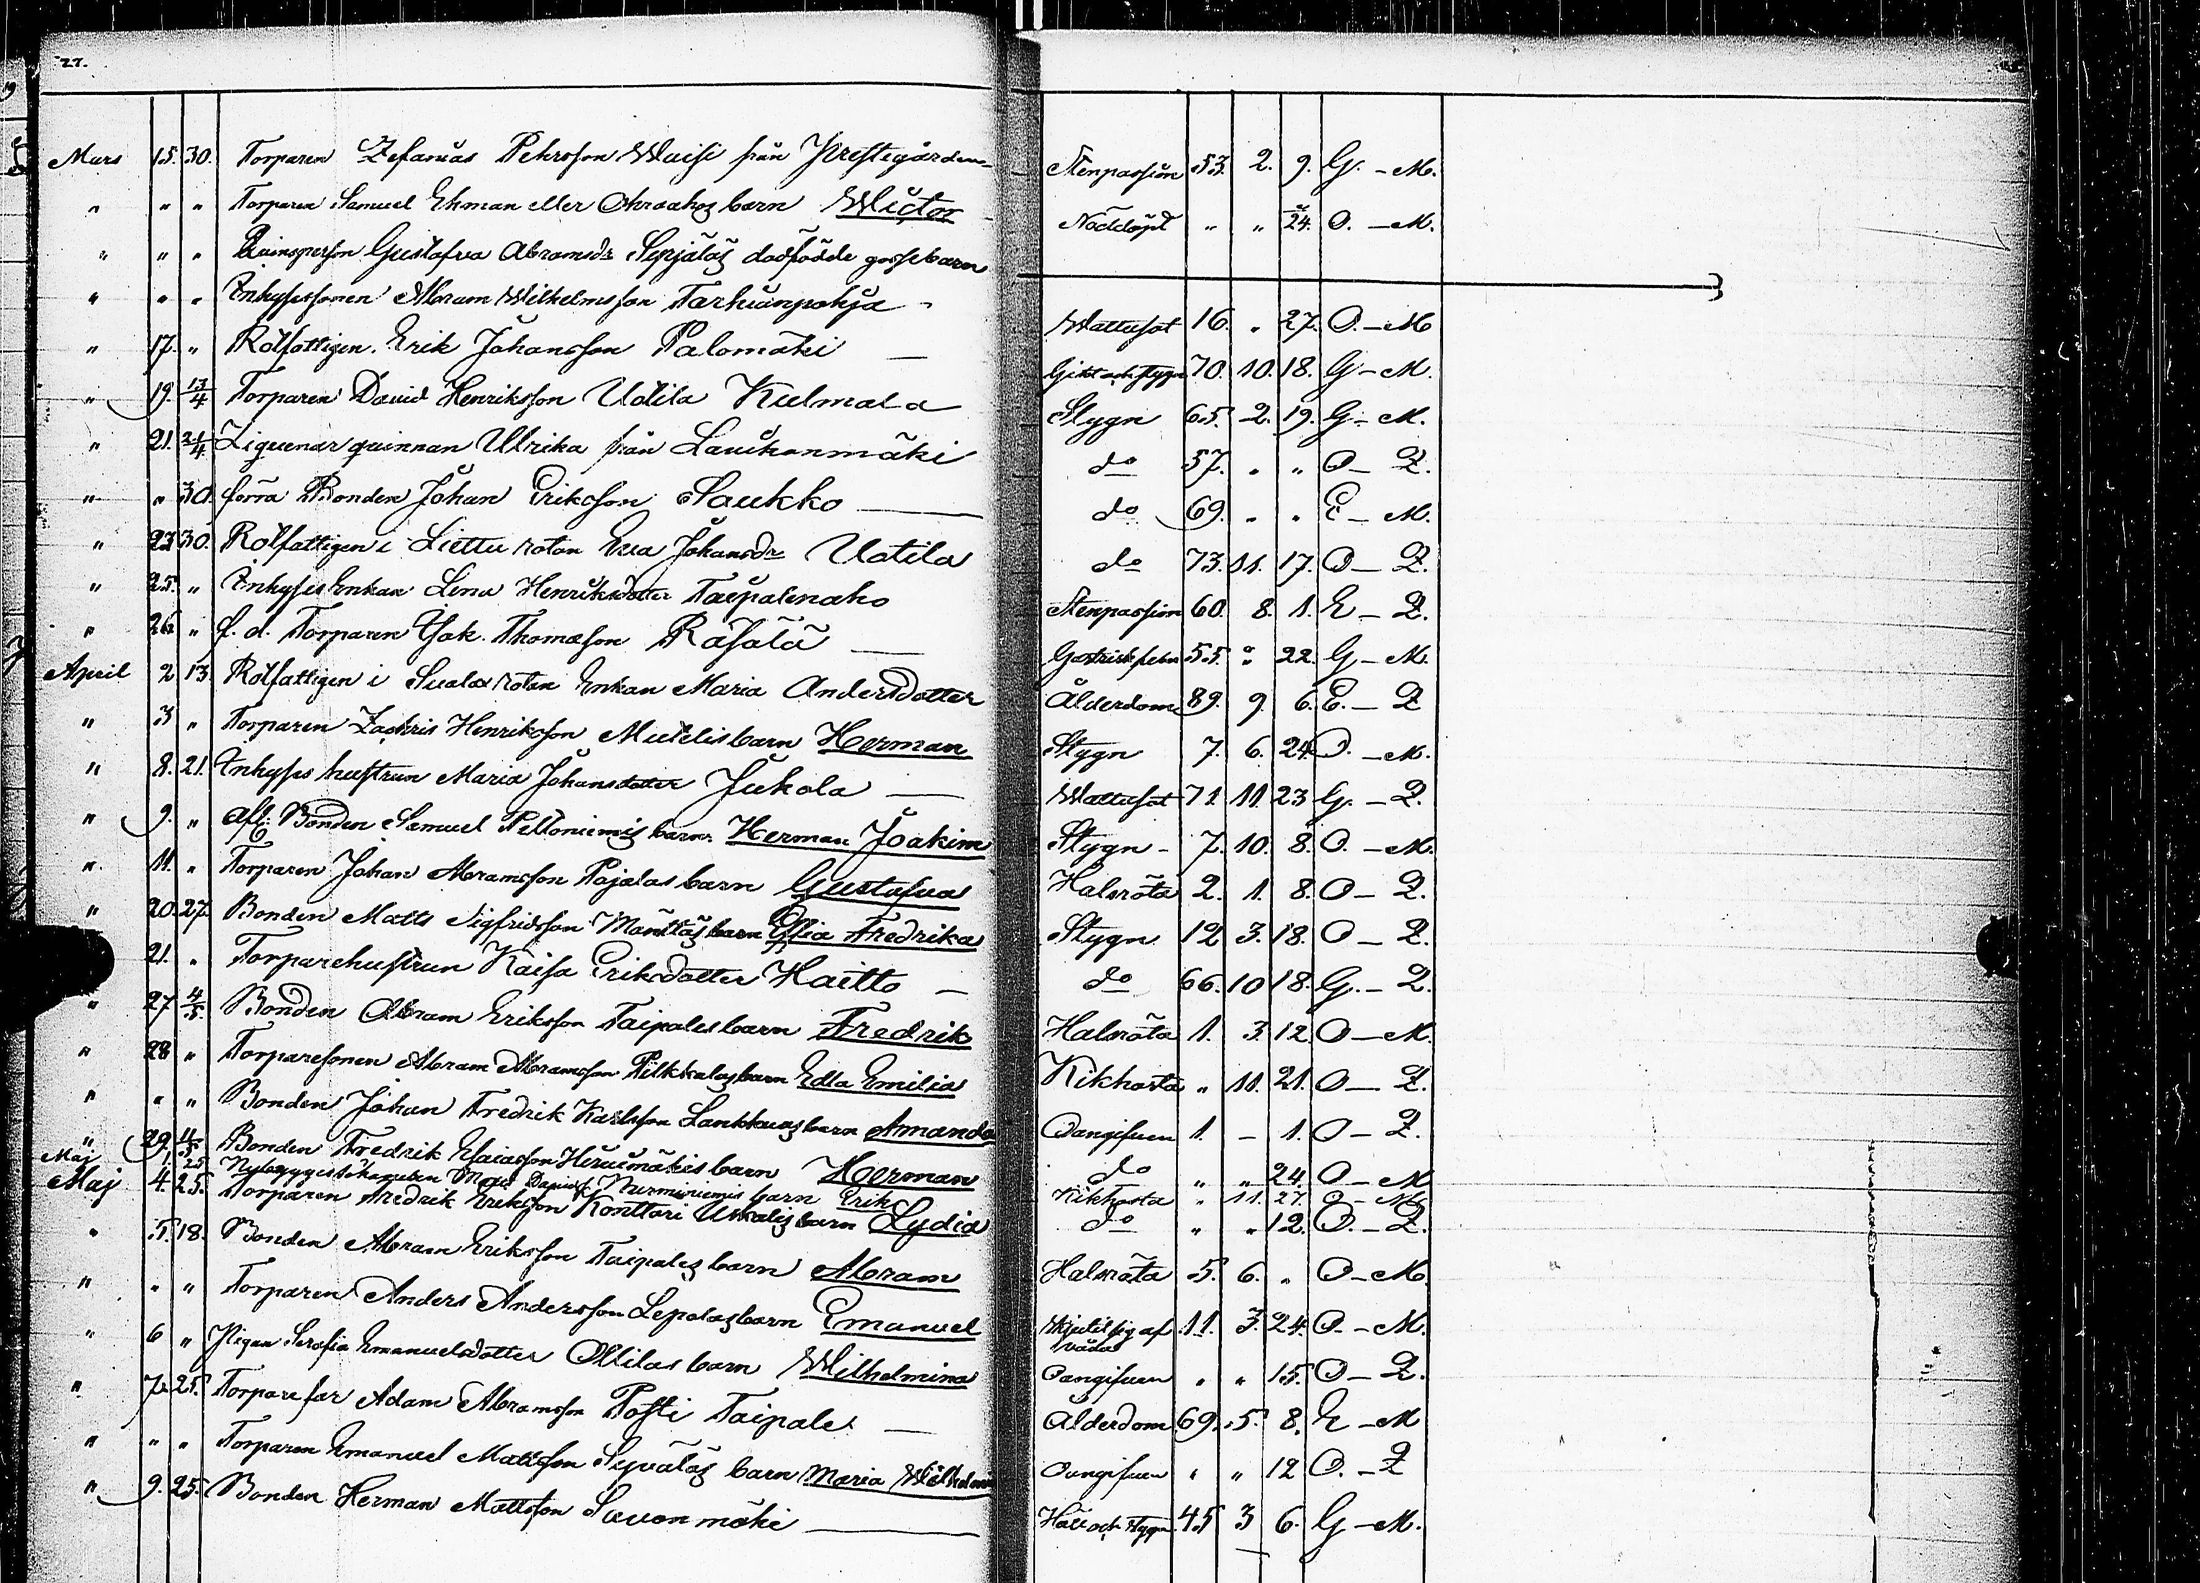 27.
Mars 15. 30. Torparen Zefanias Pehrsson Waisi från Prestegården Stenpassion 53. 2. 9. G. - M.
" " " Torparen Samuel Ekman eller Ahraahoz barn Wictor Nöddöpt " " 24. O. - M.
" " " Gustafva Abramsdr Sepjäläz dödfödde gossebarn
" " " Inhysessonen Abram Wilhelmsson Tarhianpohja - Wattusot 16. " 27. O. - M
" 17. " Rotfattigen Erik Johansson Palomäki — Gikt och stygn 70. 10. 18. G - M.
" 19. 13/4 Torparen David Henriksson Uotila Kulmala Stygn 65. 2. 19. G - M.
" 21. 21/4 Ziguenar quinnan Ulrika från Laukonmäki do 57. " " O - Q.
" " 30. förra Bonden Johan Eriksson Saukko — do 69. " " E - M.
" 23 30. Rotfattigen i Liettu rotan Eva Johansdr Uotila do 73. 11. 17. O - Q.
" 25. " Inhyses Enkan Lena Henriksdotter Taipalenaho Stenpassion 60. 8. 1. E - Q.
" 26 " f. d. Torparen Isak Thomasson Rajala — Gastrisk feber 55. " 22. G - M.
April 2 13. Rotfattigen i rotan Enkan Maria Andersdotter Ålderdom 89. 9. 6. E. - Q
" 3 " Torparen Zachris Henriksson barn Herman Stygn 7. 6. 24 O. - M.
" 8. 21. Inhyses hustrun Maria Johansdotter Jukola — Wattusot 71. 11. 23 G. - Q.
" 9. " afl. Bonden Samuel Peltoniemis barn Herman Joakim Stygn - 7. 10. 8. O. - M.
" 11. " Torparen Johan Abramsson Pajalas barn Gustafva Halsröta 2. 1. 8. O - Q.
" 20. 27. Bonden Matts Sigfridsson Mänttäz barn Fredrika Stygn 12 3. 18. O - Q.
21. " Torparehustrun Kaisa Eriksdotter Haitto — do 66. 10 18. G. - Q.
" 27 4/5. Bonden Abram Eriksson Taipales barn Fredrik Halsröta 1. 3. 12. O - M.
" 28 " Torparesonen Abram Abramsson Pilkkalaz barn Edla Emilia Kikhosta " 11. 21. O - Q.
" " " Bonden Johan Fredrik Karlsson Lankkuaz barn Amanda Oangifven 1. - 1. O - Q.
" 29. 11/5. Bonden Fredrik Esaiasson Hirvimäkis barn Herman do " " 24. O - M
Maj 25 Nybyggessökanden Davidss. Nurminiemis barn Erik Kikhosta " 11. 27. O - M.
Maj 4. 25. Torparen Fredrik Eriksson Konttari Uskaliz barn Lydia do " " 12. O. - Q.
" 5. 18. Bonden Abram Eriksson Taipalez barn Abram Halsröta 5. 6. " O - M.
" " " Torparen Anders Andersson Lepolaz barn Emanuel af våda 11. 3. 24. O. - M.
" 6 " Pigan Serafia Emanuelsdotter Ollilas barn Wilhelmina Oangifven " " 15. O - Q.
" 7. 25. Torparefar Adam Abramsson Posti Taipale — Ålderdom 69. 5. 8. E - M
" " " Torparen Emanuel Mattsson Syväläz barn Maria Oangifven " " 12 O. - Q
" 9. 25. Bonden Herman Mattsson Savonmäki — Håll och stygn 45 3 6. G - M.